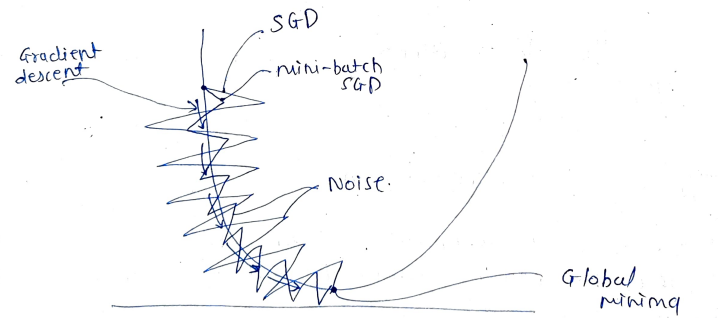 SGD
Gradient
descent
mini-batch
SGD
Noise.
Global
minima